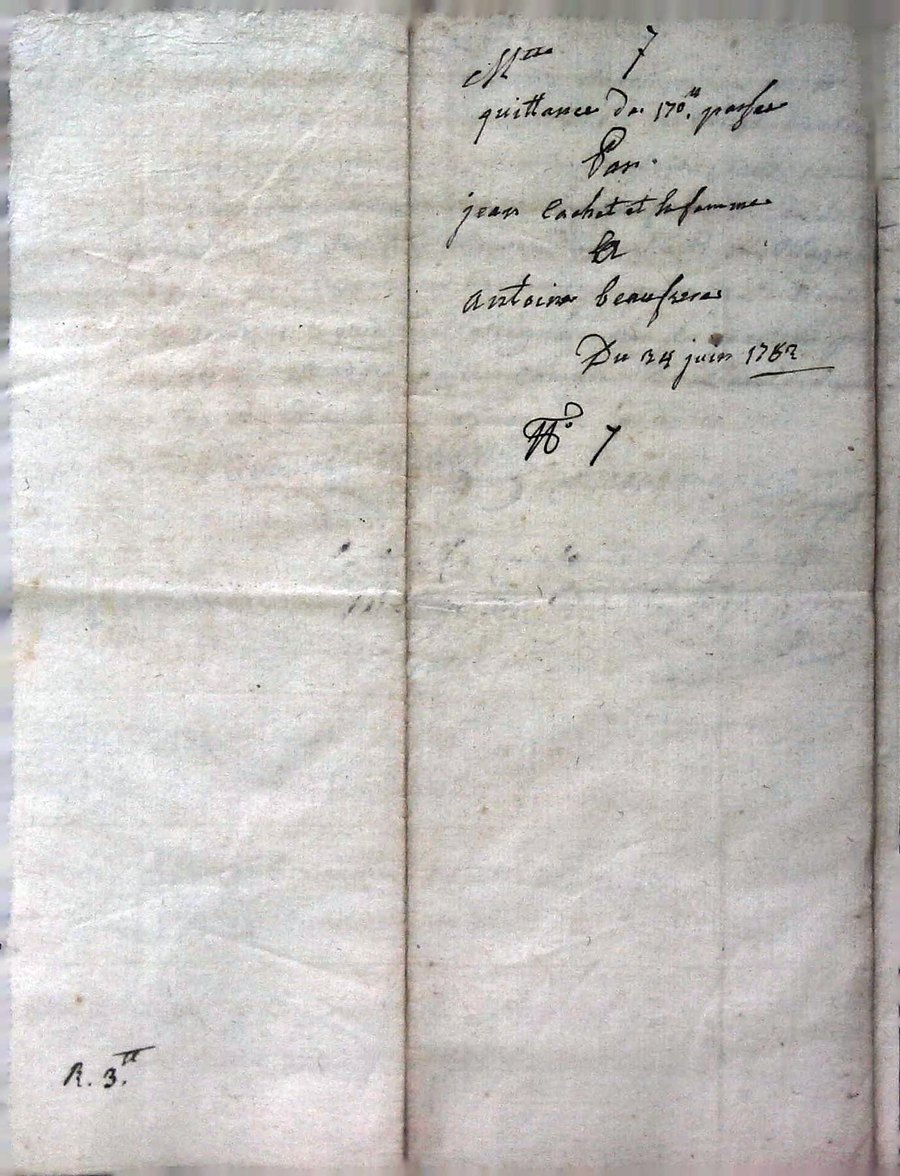 7
quittance de 170ᵗᵗ. passee
Par.
jean Cachet et sa femme
a
antoine beaufrere
Du 24 juin 1782
N° 7
R. 3.ᵗᵗ